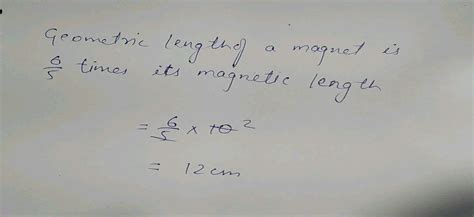 Geometric length of a magnet is
6/5 times its magnetic length
= 6/5 × 10 2
= 12 cm